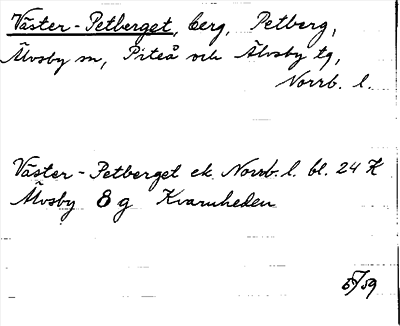 Väster-Petberget, berg, Petberg,
Älvsby sn, Piteå och Älvsby tg,
Norrb. l.
Väster-Petberget ek. Norrb. l. bl. 24 K
Älvsby 8 g Kvarnheden
5/7 59